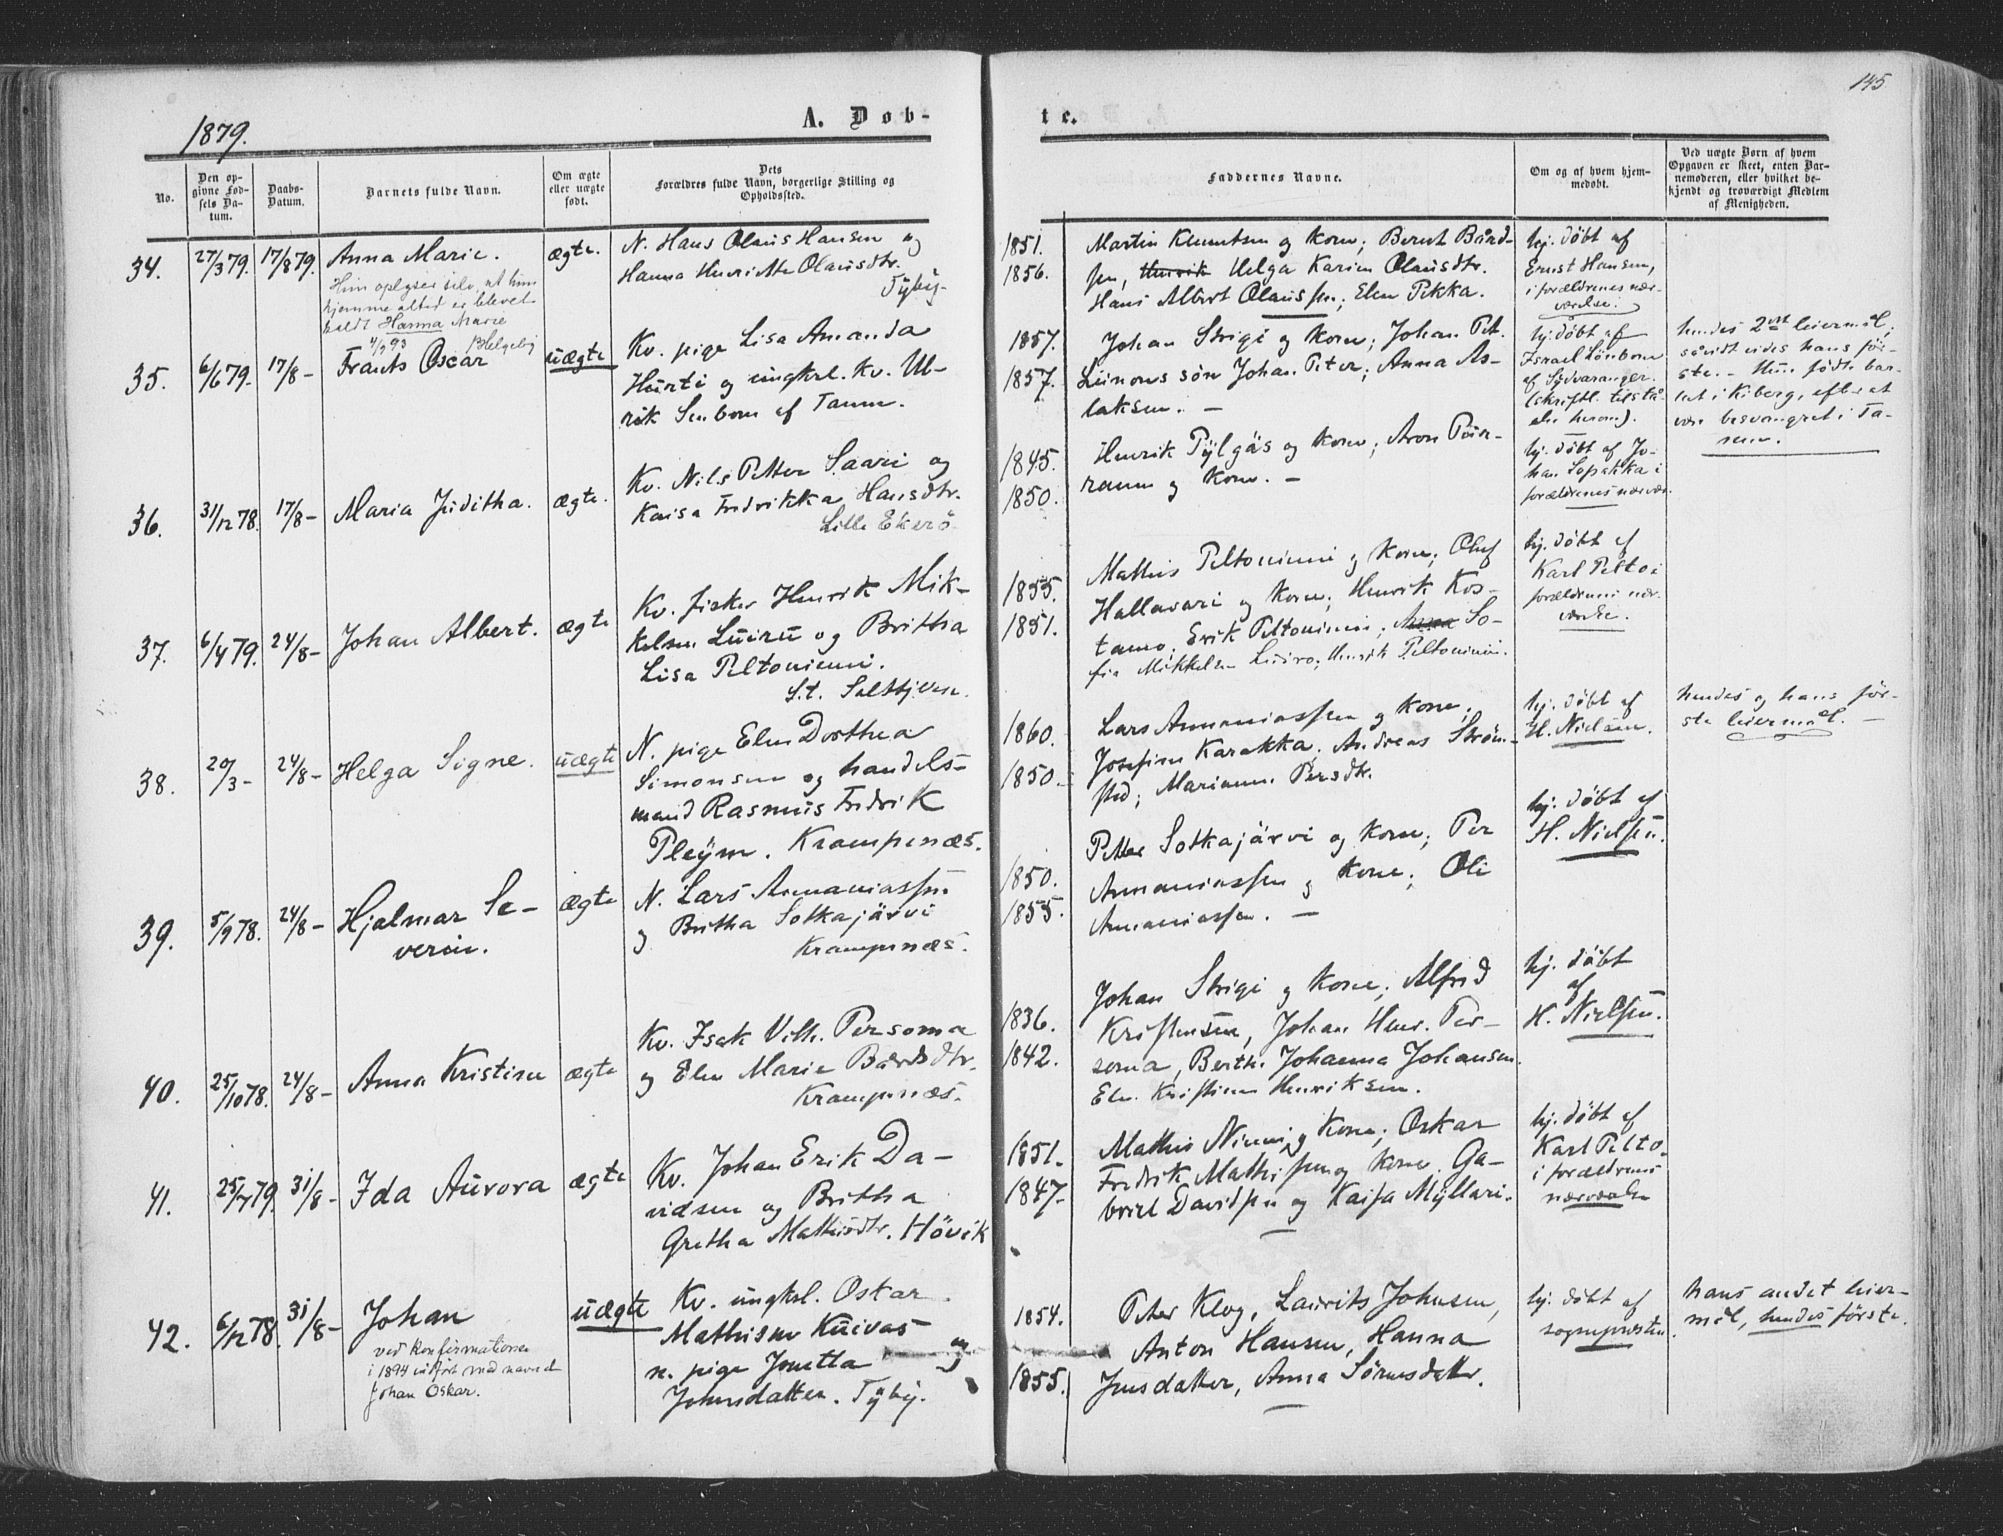 145
1879.
A. Døb-
te.
No.
Den op-
givne Fød-
sels Da-
tum.
Daabs-
Datum.
Barnets fulde Navn.
Om ægte
eller uægte
født.
Dets
Forældres fulde Navn, borgerlige Stilling og
Opholdssted.
Faddernes Navne.
Om og af hvem hjem-
medøbt.
Ved uægte Børn af hvem
Opgaven er skeet, enten Bar-
nemoderen, eller hvilket be-
kjendt og troværdigt Medlem
af Menigheden.
34.
27/3 79.
17/8 79.
Anna Marie.
Hun oplyser selv, at hun
hjemme altid er blevet
kaldt Hanna Marie
4/9 93
Helgeby
ægte.
N. Hans Olaus Hansen og
Hanna Henriette Olausdtr.
Tyby.
1851.
1856.
Martin Klemetsen og Kone; Bernt Bård-
sen, Henrik Helga Karien Olausdtr.
Hans Albert Olaussen; Elen Pikka.
hj. døbt af
Ernst Hansen,
i forældrenes nær-
værelse.
35.
6/6 79.
17/8 -
Frants Oscar
uægte
Kv. pige Lisa Amanda
Hurti og ungkrl. Kv. Ul-
rik Senbom af Tanen.
1857.
1857.
Johan Strigi og Kone; Johan Pet.
Leinons søn Johan Peter; Anna As-
laksen. -
hj. døbt af
Israel Lönbom
af Sydvaranger.
(skriftl. tilstå-
else herom).
hendes 2det leiermål,
såvidt vides hans før-
ste. - Hun fødte bar-
net i Kiberg, efter at
være besvangret i Ta-
nen.
36.
31/12 78.
17/8 -
Maria Juditha.
ægte.
Kv. Nils Petter Saari og
Kaisa Fredrikka Hansdtr.
Lille Ekerö
1845.
1850.
Henrik Pylgäs og Kone; Aron Poin-
ranen og Kone. -
hj. døbt af Jo-
han Sopakka i
forældrenes nærvær.
37.
6/4 79.
24/8 -
Johan Albert.
ægte
Kv. fisker Henrik Mik-
kelsen Luiru og Britha
Lisa Peltoniemi.
S.t. Saltfjeren.
1855.
1851.
Mathis Peltoniemi og Kone; Oluf
Hallavari og Kone; Henrik Kos-
tamo; Erik Peltoniemi; Anna So-
fia Mikkelsen Luiro; Henrik Peltoniemi.
hj. døbt af
Karl Pelto i
forældrenes nær-
værelse.
38.
20/3 -
24/8 -
Helga Signe.
uægte
N. pige Elen Dorthea
Simonsen og handels-
mand Rasmus Fredrik
Pleym. Krampenæs.
1860.
1850.
Lars Annaniassen og Kone,
Josefine Karakka, Andreas Strøm-
sted; Marianne Persdtr.
hj. døbt af
H. Nielsen.
hendes og hans før-
ste leiermål. -
39.
5/9 78.
24/8 -
Hjalmar Se-
verin.
ægte
N. Lars Annaniassen
og Britha Sotkajärvi
Krampenæs.
1850.
1855.
Petter Sotkajärvi og Kone; Per
Annaniassen og Kone; Oli
Annaniassen. -
hj. døbt af
H. Nielsen.
40.
25/10 78.
24/8 -
Anna Kristine
ægte
Kv. Isak Vilh. Persoma
og Elen Marie Bårdsdtr.
Krampenæs.
1836.
1842.
Johan Strigi og Kone, Alfred
Kristensen, Johan Henr. Per-
soma, Berth. Johanna Johansen.
Elen Kristine Henriksen.
hj. døbt
af
H. Nielsen.
41.
25/7 79.
31/8 -
Ida Aurora
ægte
Kv. Johan Erik Da-
vidsen og Britha
Gretha Mathisdtr. Hövik
1851.
1847.
Mathis Niemi og Kone; Oskar
Fredrik Mathissen og Kone. Ga-
briel Davidsen og Kaisa Myllari.
hj. døbt af
Karl Pelto
i forældrenes
nærværelse
42.
6/12 78.
31/8 -
Johan
ved Konfirmationen
i 1894 indført med navnet
Johan Oskar.
uægte
Kv. ungkrl. Oskar
Mathisen Kuivas og
n. pige Jonetta
Johnsdatter. Tyby.
1854.
1855.
Peter Klog, Laurits Johnsen,
Anton Hansen, Hanna
Jensdatter, Anna Sörensdatter.
hj. døbt af
sognepresten
hans andet leier-
mål, hendes første.